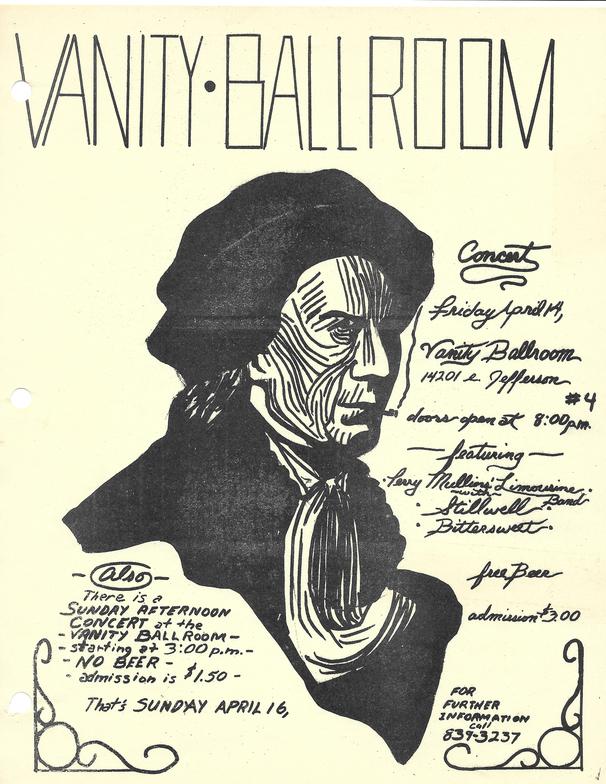 VANITY • BALLROOM
Concert
Friday April 14,
Vanity Ballroom
14201 e. Jefferson
#4
doors open at 8:00 p.m.
— featuring —
Perry Mullins' Limousine
- with - Band
· Stillwell ·
· Bittersweet ·
free Beer
admission $3.00
- Also -
There is a
SUNDAY AFTERNOON
CONCERT at the
- VANITY BALLROOM -
- starting at 3:00 p.m. -
- NO BEER -
- admission is $1.50 -
That's SUNDAY APRIL 16,
FOR
FURTHER
INFORMATION
Call
839-3237